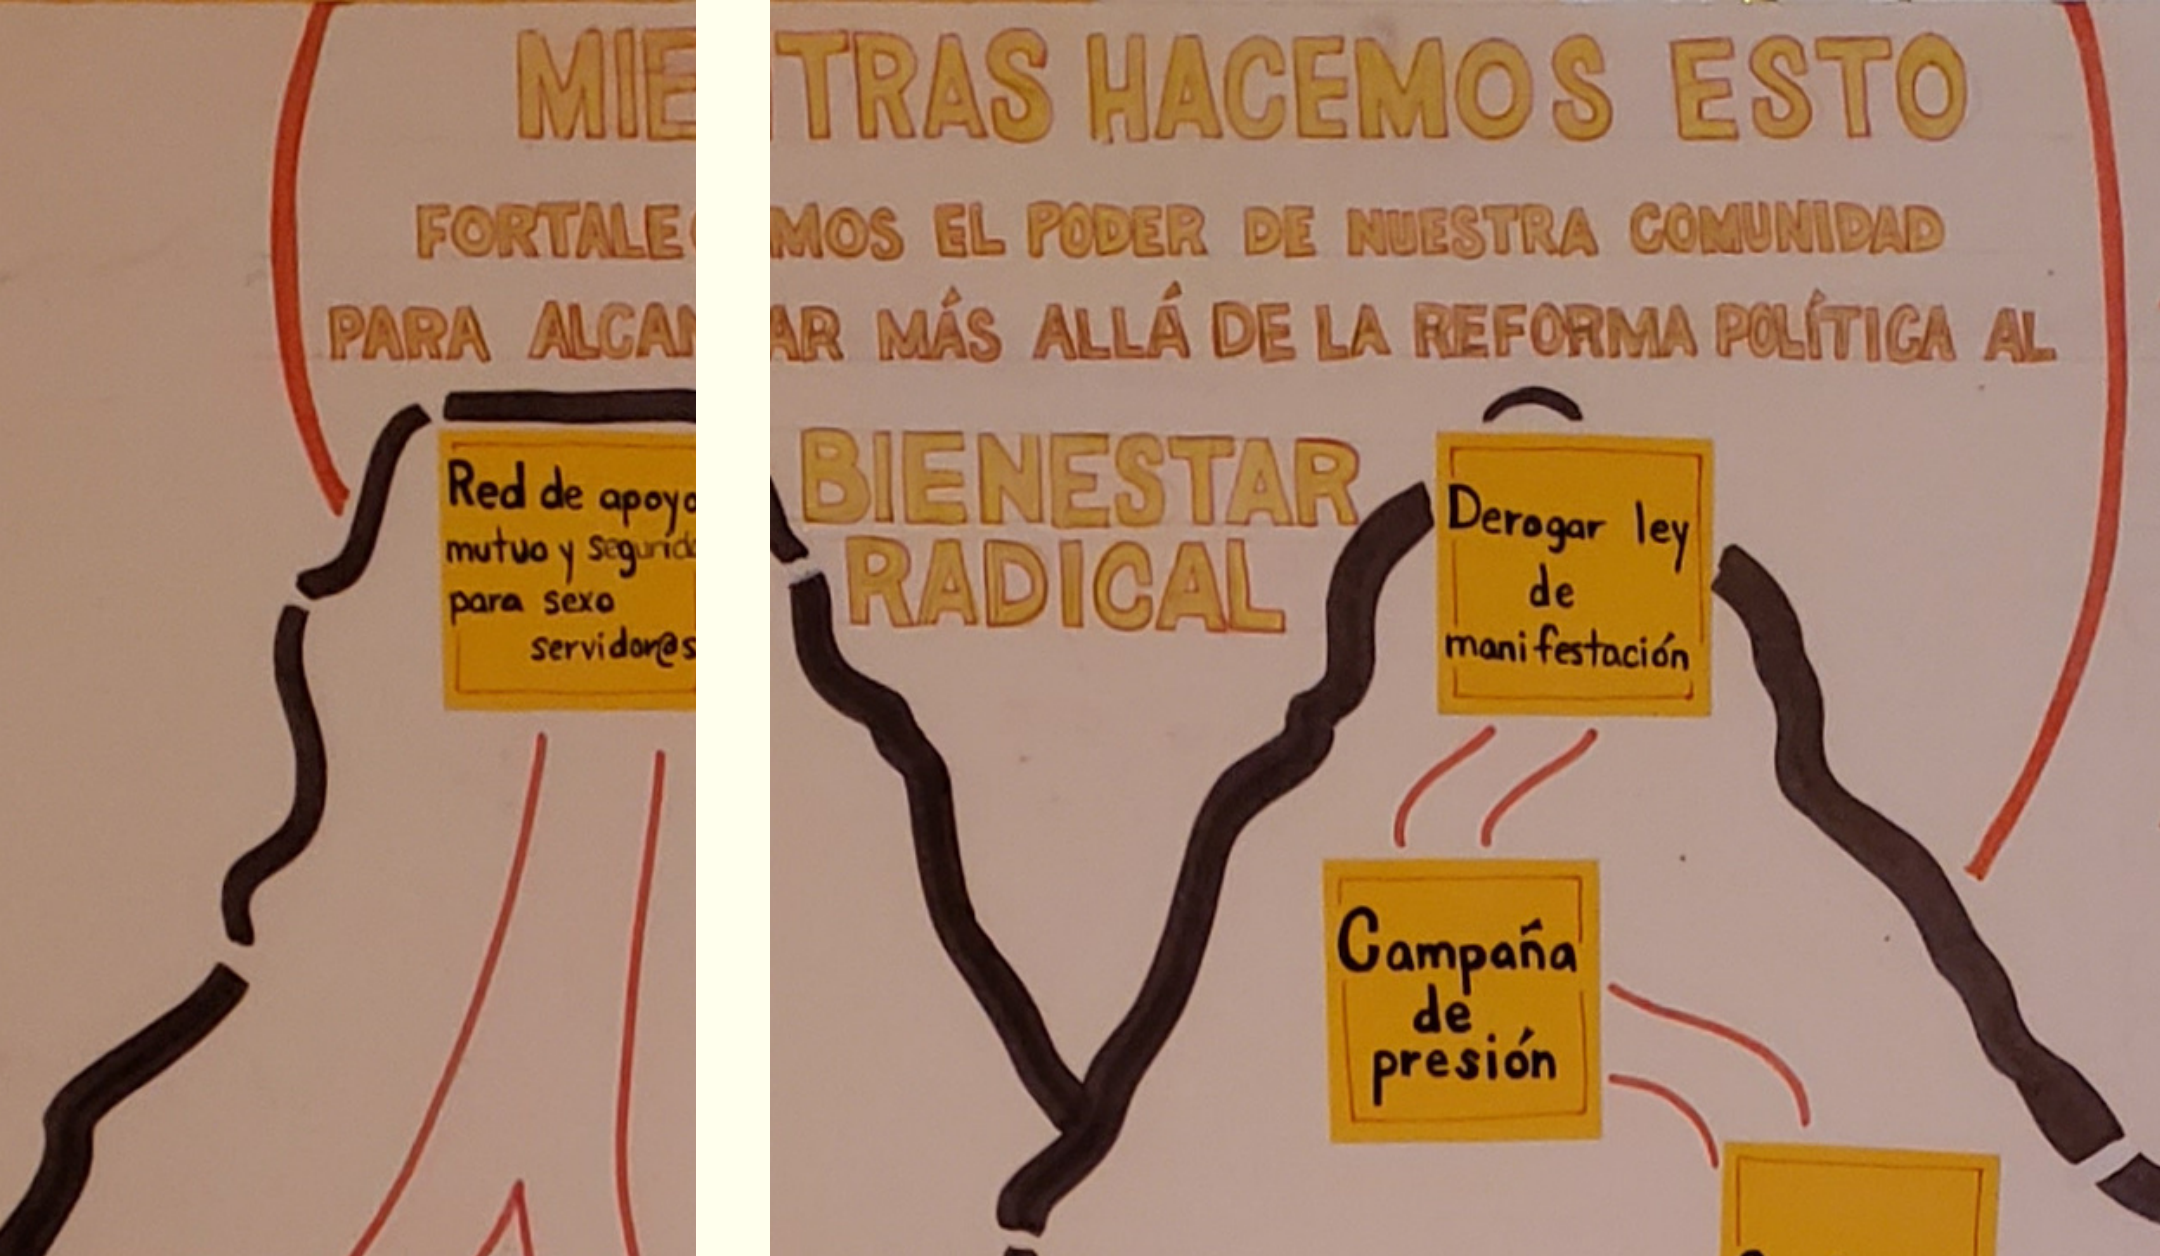 MIE TRAS HACEMOS ESTO
FORTALE MOS EL PODER DE NUESTRA COMUNIDAD
PARA ALCAN AR MÁS ALLÁ DE LA REFORMA POLÍTICA AL
BIENESTAR
RADICAL
Red de apoyo
mutuo y segurid
para sexo
servidor@s
Derogar ley
de
manifestación
Campaña
de
presión